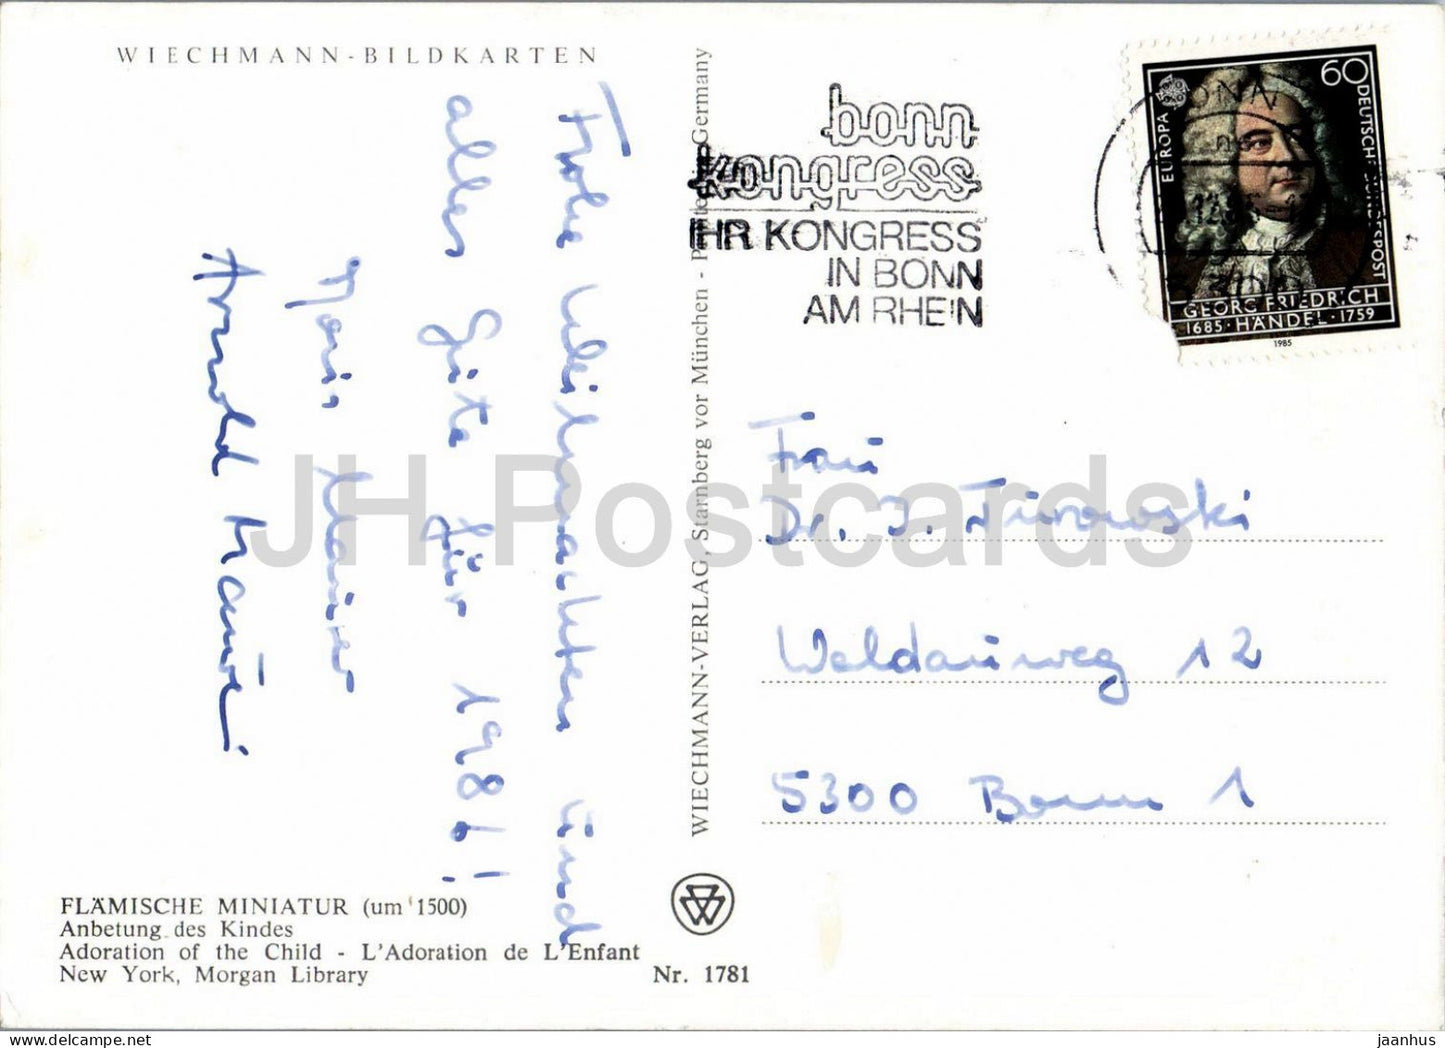 WIECHMANN-BILDKARTEN
Frohe Weihnachten und
alles Gute für 1986!
Arnold
FLÄMISCHE MINIATUR (um 1500)
Anbetung des Kindes
Adoration of the Child - L'Adoration de L'Enfant
New York, Morgan Library
Nr. 1781
WIECHMANN-VERLAG, Starnberg vor München - Germany
bonn
kongress
IHR KONGRESS
IN BONN
AM RHEIN
BONN
60
DEUTSCHE BUNDESPOST
EUROPA
GEORG FRIEDRICH
1685 · HÄNDEL · 1759
1985
Frau
Dr. J. Turowski
Weldauweg 12
5300 Bonn 1
JH Postcards
jaanhus